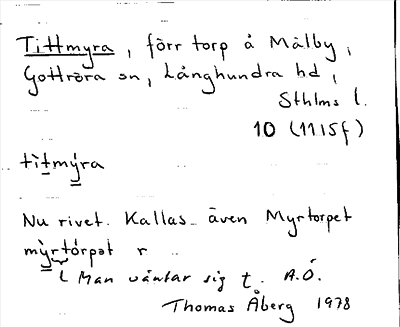 Tittmyra, förr torp å Målby,
Gottröra sn, Långhundra hd,
Sthlms l.
10 (11I5f)
tìtmýra
Nu rivet. Kallas även Myrtorpet
mỳrtórpət r
Man väntar sig t. A.Ö.
Thomas Åberg 1978